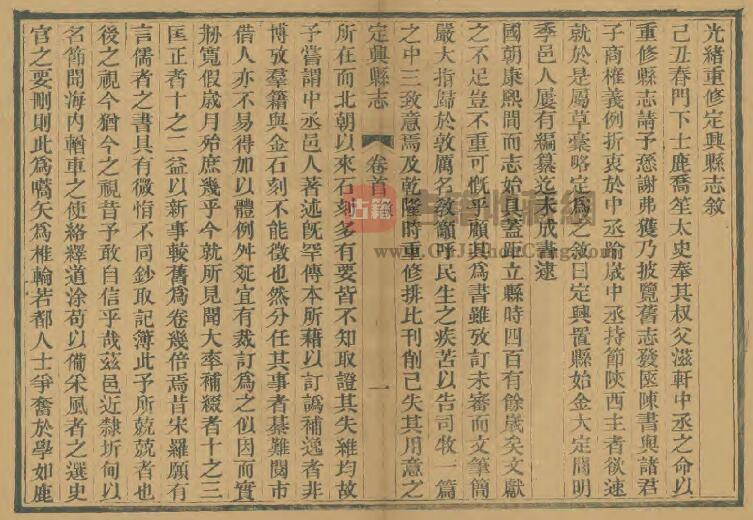 光緒重修定興縣志敘
己丑春門下士鹿喬笙太史奉其叔父滋軒中丞之命以
重修縣志請予愻謝弗獲乃披覽舊志發匧陳書與諸君
子商榷義例折衷於中丞踰歲中丞持節陝西主者欲速
就於是屬草稾略定為之敘曰定興置縣始金大定閒明
季邑人屢有編纂迄未成書逮
國朝康熙間而志始具蓋距立縣時四百有餘歲矣文獻
之不足豈不重可慨乎顧其為書雖攷訂未審而文筆簡
嚴大指歸於敦厲名教籲呼民生之疾苦以告司牧一篇
之中三致意焉及乾隆時重修排比刊削已失其用意之
定興縣志
卷首 敘
一
所在而北朝以來石刻多有要皆不知取證其失維均故
予嘗謂中丞邑人著述旣罕傳本所藉以訂譌補逸者非
博攷羣籍與金石刻不能徵也然分任其事者綦難閱市
借人亦不易得加以體例舛迕宜有裁訂為之似因而實
剏寬假歲月殆庶幾乎今就所見聞大率補綴者十之三
匡正者十之二益以新事較舊為卷幾倍焉昔宋羅願有
言儒者之書具有微恉不同鈔取記簿此予所兢兢者也
後之視今猶今之視昔予敢自信乎哉茲邑近隸折甸以
名節聞海內輶車之使絡繹道涂苟以備采風者之選史
官之要刪則此為嚆矢為椎輪若都人士爭奮於學如鹿
古籍